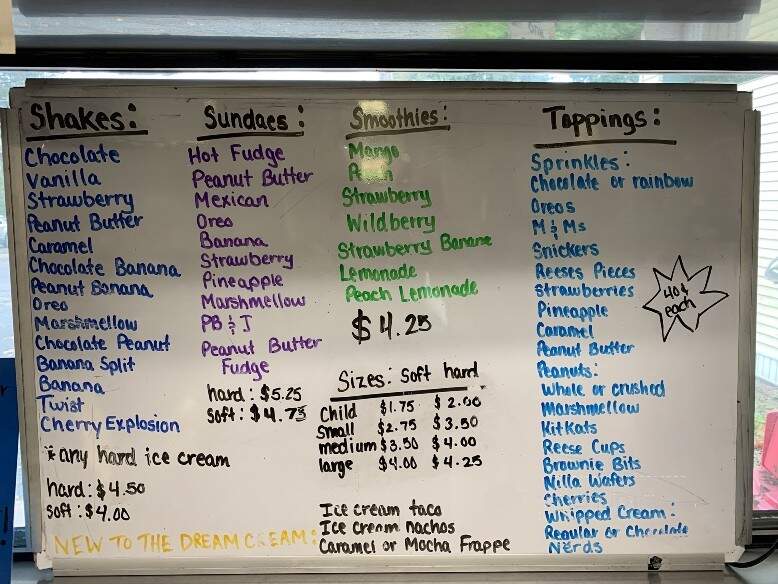 Shakes:
Chocolate
Vanilla
Strawberry
Peanut Butter
Caramel
Chocolate Banana
Peanut Banana
Oreo
Marshmellow
Chocolate Peanut
Banana Split
Banana
Twist
Cherry Explosion
*any hard ice cream
hard: $4.50
soft: $4.00
Sundaes:
Hot Fudge
Peanut Butter
Mexican
Oreo
Banana
Strawberry
Pineapple
Marshmellow
PB & J
Peanut Butter
Fudge
hard: $5.25
soft: $4.75
Smoothies:
Mango
Peach
Strawberry
Wildberry
Strawberry Banane
Lemonade
Peach Lemonade
$4.25
Sizes: soft hard
Child $1.75 $2.00
small $2.75 $3.50
medium $3.50 $4.00
large $4.00 $4.25
NEW TO THE DREAM CREAM:
Ice cream taco
Ice cream nachos
Caramel or Mocha Frappe
Toppings:
Sprinkles:
Chocolate or rainbow
Oreos
M & Ms
Snickers
Reeses Pieces
strawberries
Pineapple
Caramel
Peanut Butter
Peanuts:
Whole or crushed
Marshmellow
KitKats
Reese Cups
Brownie Bits
Nilla Wafers
Cherries
Whipped Cream:
Regular or Chocolate
Nerds
40¢
each